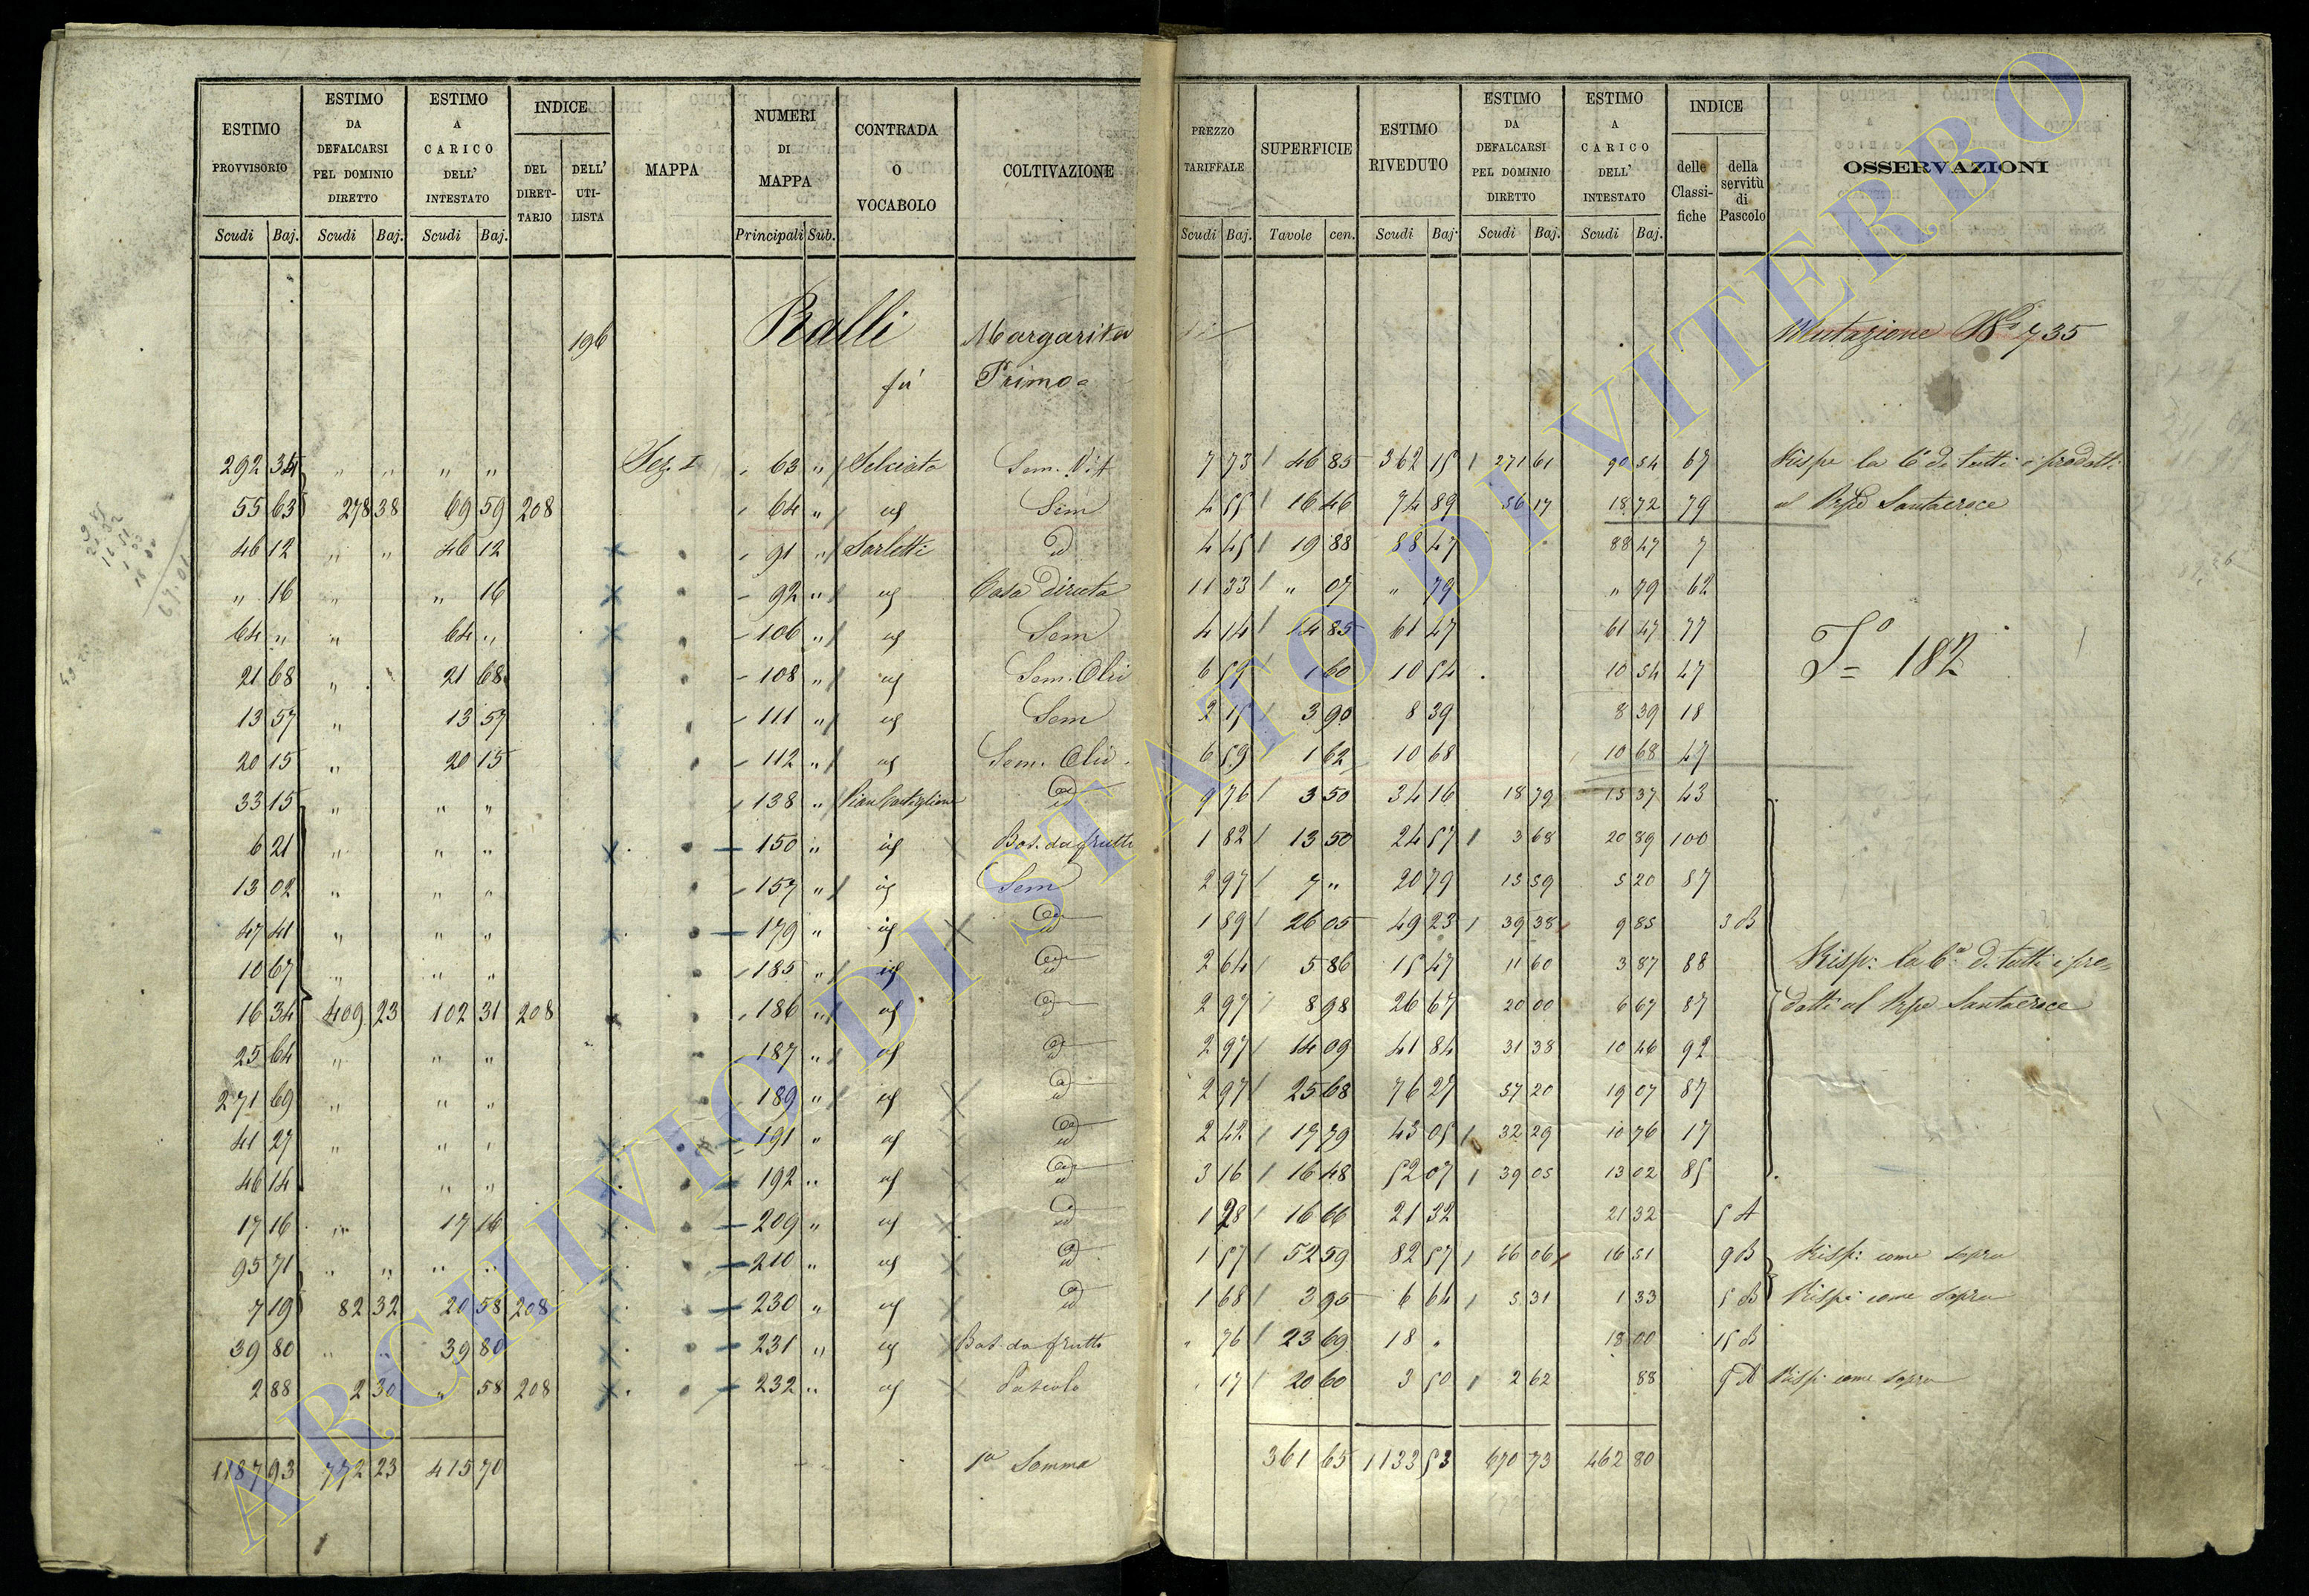 ESTIMO PROVVISORIO | ESTIMO DA DEFALCARSI PEL DOMINIO DIRETTO | ESTIMO A CARICO DELL' INTESTATO | INDICE DEL DIRET-TARIO | DELL' UTI-LISTA | MAPPA | NUMERI DI MAPPA | CONTRADA O VOCABOLO | COLTIVAZIONE | PREZZO TARIFFALE | SUPERFICIE | ESTIMO RIVEDUTO | ESTIMO DA DEFALCARSI PEL DOMINIO DIRETTO | ESTIMO A CARICO DELL' INTESTATO | INDICE delle Classi-fiche | della servitù di Pascolo | OSSERVAZIONI
Scudi Baj. Scudi Baj. Scudi Baj. Principali Sub. Scudi Baj. Tavole cen. Scudi Baj. Scudi Baj. Scudi Baj.
196 Ralli Margarita Mutazione No 735
fu Primo
292 34 " " " " Sez. I 63 " Selciata Sem. Vit 7 73 46 85 362 15 271 61 90 54 67 Rispe la 6 di tutti i prodotti
55 63 278 38 69 59 208 64 " id Sem 4 55 16 46 74 89 56 17 18 72 79 al Santacroce
46 12 " " 46 12 91 " Sarletti id 4 45 19 88 88 47 88 47 7
" 16 " " 16 92 " id Casa diruta 11 33 " 07 " 79 " 79 62
64 " " 64 " 106 " id Sem 4 14 14 85 61 47 61 47 77
To 182
21 68 " 21 68 108 " id Sem. Oliv 6 59 1 60 10 54 10 54 47
13 57 " 13 57 111 " id Sem 2 15 3 90 8 39 8 39 18
20 15 " 20 15 112 " id Sem. Oliv. 6 59 1 62 10 68 10 68 47
33 15 " " " 138 " Pian Castiglione id 9 76 3 50 34 16 18 79 15 37 43
6 21 " " " 150 " id Bos. da frutto 1 82 13 50 24 57 3 68 20 89 100
13 02 " " " 157 " id Sem 2 97 7 " 20 79 15 59 5 20 87
47 41 " " " 179 " id id 1 89 26 05 49 23 39 38 9 85 3 B
10 67 " " " 185 " id id 2 64 5 86 15 47 11 60 3 87 88 Risp: la 6a di tutti i pro=
16 34 409 23 102 31 208 186 " id id 2 97 8 98 26 67 20 00 6 67 87 dotti al Santacroce
25 64 " " " 187 " id id 2 97 14 09 41 84 31 38 10 46 92
271 69 " " " 189 " id id 2 97 25 68 76 27 57 20 19 07 87
41 27 " " " 191 " id id 2 42 17 79 43 05 32 29 10 76 17
46 14 " " 192 " id id 3 16 16 48 52 07 39 05 13 02 85
17 16 " 17 16 209 " id id 1 28 16 66 21 32 21 32 5 A
95 71 " " " " 210 " id id 1 57 52 59 82 57 66 06 16 51 9 B Risp: come sopra
7 19 82 32 20 58 208 230 " id id 1 68 3 95 6 64 5 31 1 33 5 B Risp: come sopra
39 80 " " 39 80 231 " id Bos. da frutto " 76 23 69 18 " 18 00 15 B
2 88 2 30 " 58 208 232 " id Pascolo " 17 20 60 3 50 2 62 88 Risp: come sopra
1187 93 772 23 415 70 1a Somma 361 65 1133 53 670 73 462 80
ARCHIVIO DI STATO DI VITERBO